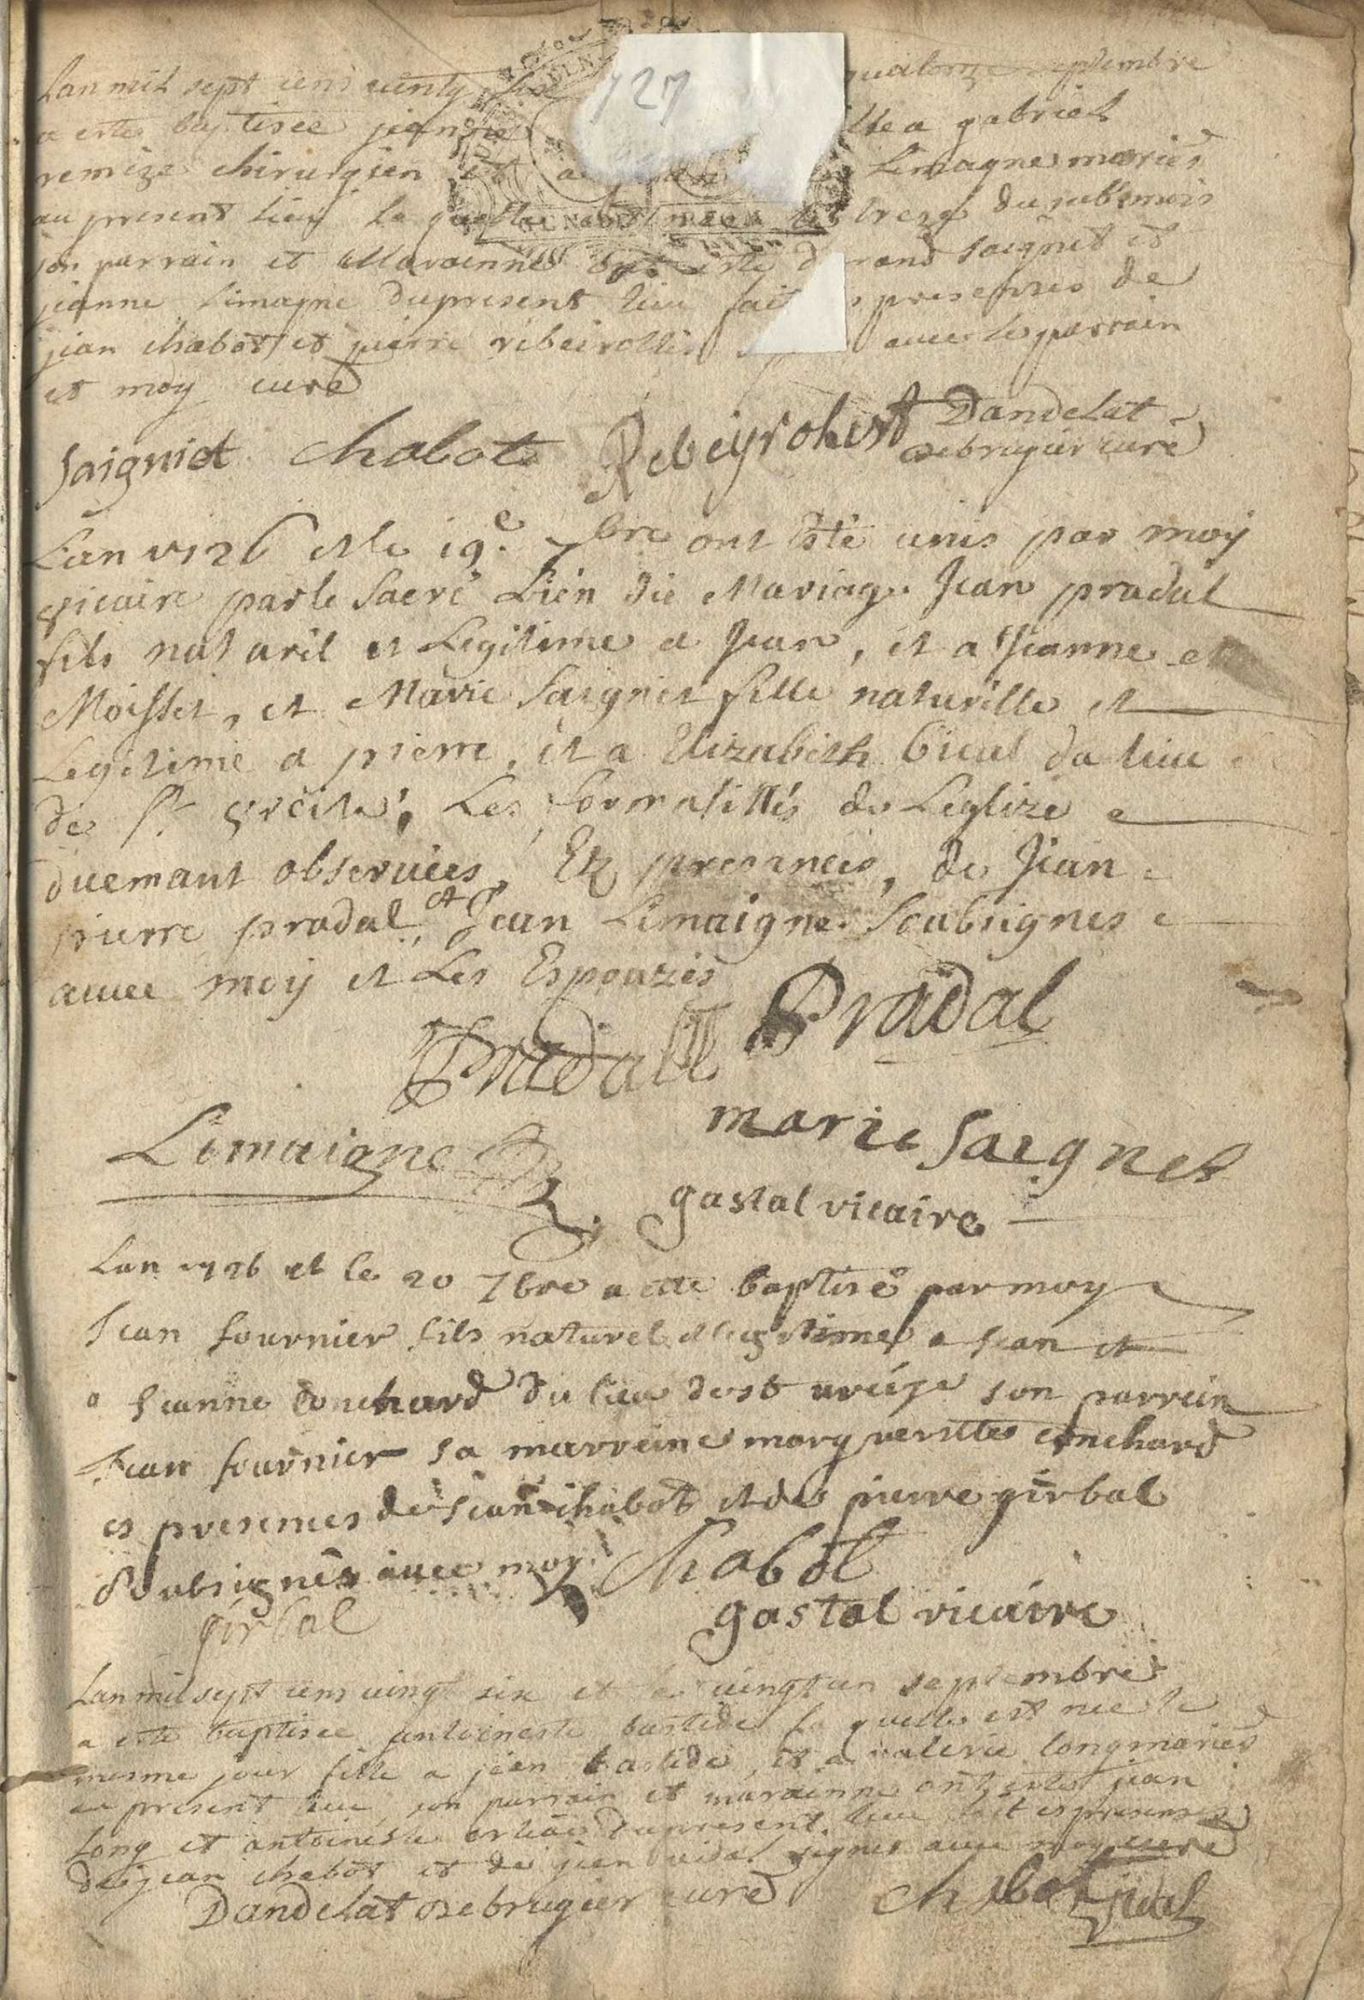 727
Lan mil sept cens vingt six quatorze septembre
a este baptisée jeanne fille a gabriel
remize chirurgien et a Limagne mariés
au present lieu la quelle treze du sub mois
son parrain et marrainne ont este durand saignet et
jeanne limagne dupresent lieu fait presences de
jean chabot et pierre ribeirolles avec le parrain
et moy curé
Saigniet chabot Rebeyrolest Dandelat
debrugier curé
Lan 1726 et le 19e 7bre ont été unis par moy
vicaire par le sacré Lien die Mariage Jean pradal
fils naturil et Legitime a Jean, et a Jeanne
Moisset, et Marie Saignet fille naturille et
Legitime a pierre, et a Elizabeth bual du lieu
de St. , Les formalittés de Leglize
duemant observées, Ez presances, de Jean
pierre pradal et Jean Limaigne Soubsignes
avvec moy et Les Espouzés
Pradall Pradal
Limaigne marie Saignet
gastal vicaire
Lan 1726 et le 20 7bre a ette baptisé par moy
Jean fournier fils naturel et legitime a jean et
a Jeanne conchard du lieu de st son parrein
Jean fournier sa marreine marguerittes conchard
es presences de Jean chabot et de pierre girbal
Soubsignés avec moy. Chabot
girbal gastal vicaire
Lan mil sept cens vingt six et le vingt un septembre
a este baptisée antoineste bastide la quelle est nee le
mesme jour fille a jean bastide, et a valerie long mariés
au present lieu, son parrain et marainne ont este jean
long et antoineste dupresent lieu fait es presences
de jean chabot et de jean vidal signes avec moy curé
Dandelat debrugier curé chabot Vidal